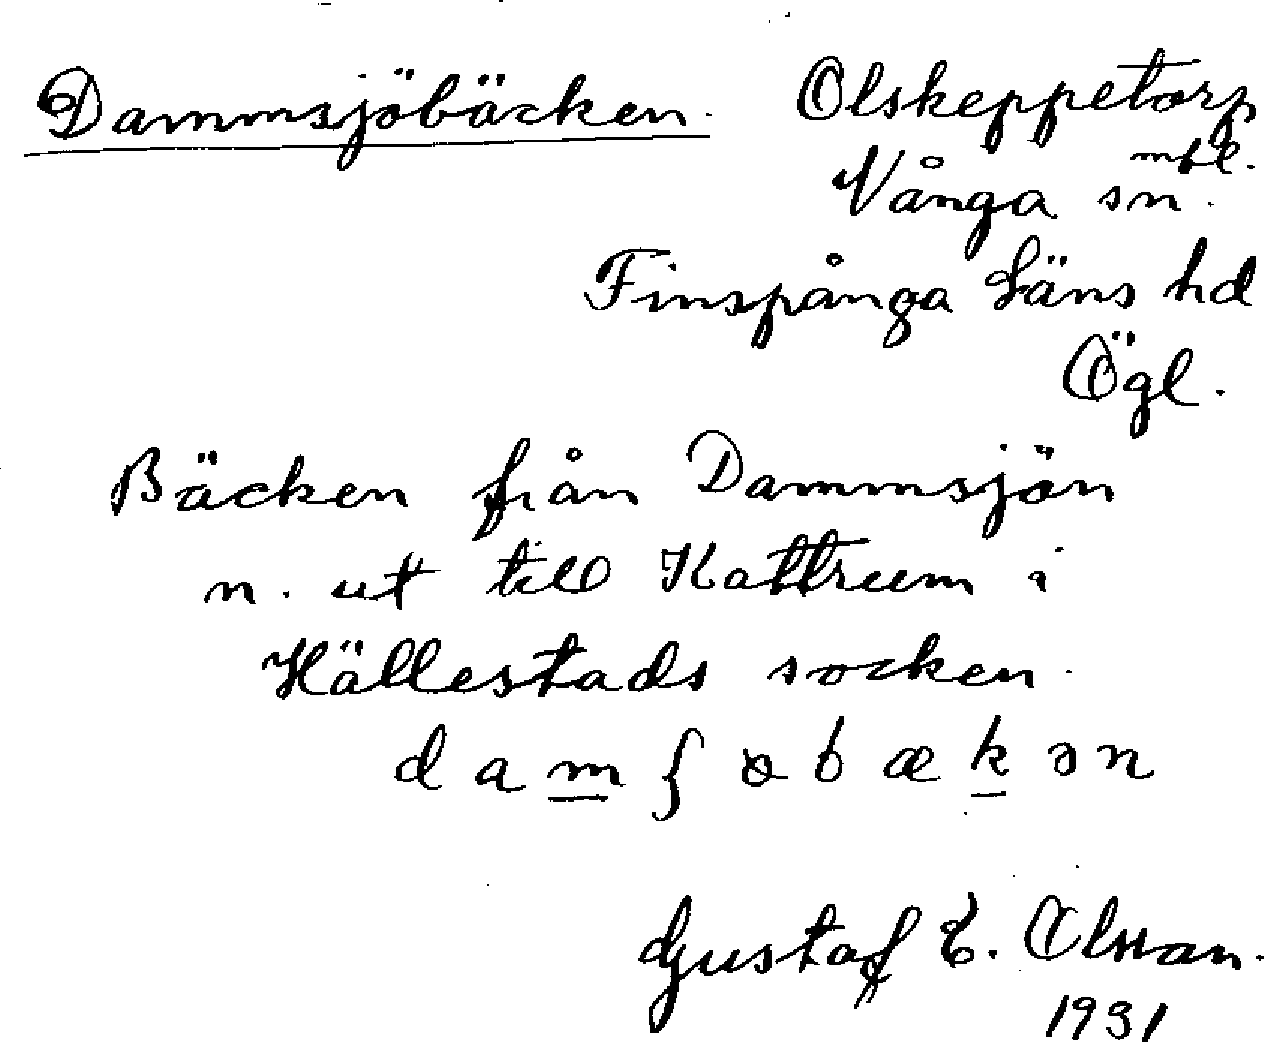 Dammsjöbäcken. Olskeppetorp
mfl.
Vånga sn.
Finspånga Läns hd
Ögl.
Bäcken från Dammsjön
n. ut till Kattrum i
Hällestads socken.
damʃøbækən
Gustaf E. Olsson.
1931